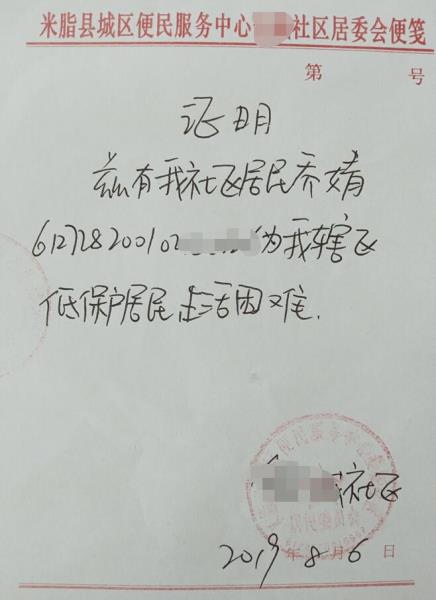 米脂县城区便民服务中心 社区居委会便笺
第 号
证明
兹有我社区居民乔婧
612728200102 为我辖区
低保护居民生活困难.
城社区
2019年8月6日